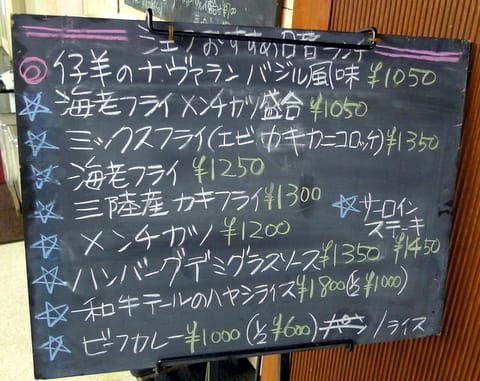 シェフおすすめ日替ランチ
仔羊のナヴァラン バジル風味 ¥1050
海老フライ メンチカツ盛合 ¥1050
ミックスフライ(エビ カキ カニコロッケ) ¥1350
海老フライ ¥1250
三陸産 カキフライ ¥1300
メンチカツ ¥1200
サーロイン
ステーキ
¥1450
ハンバーグデミグラスソース ¥1350
和牛テールのハヤシライス ¥1800 (½ ¥1000)
ビーフカレー ¥1000 (½ ¥600) /ライス